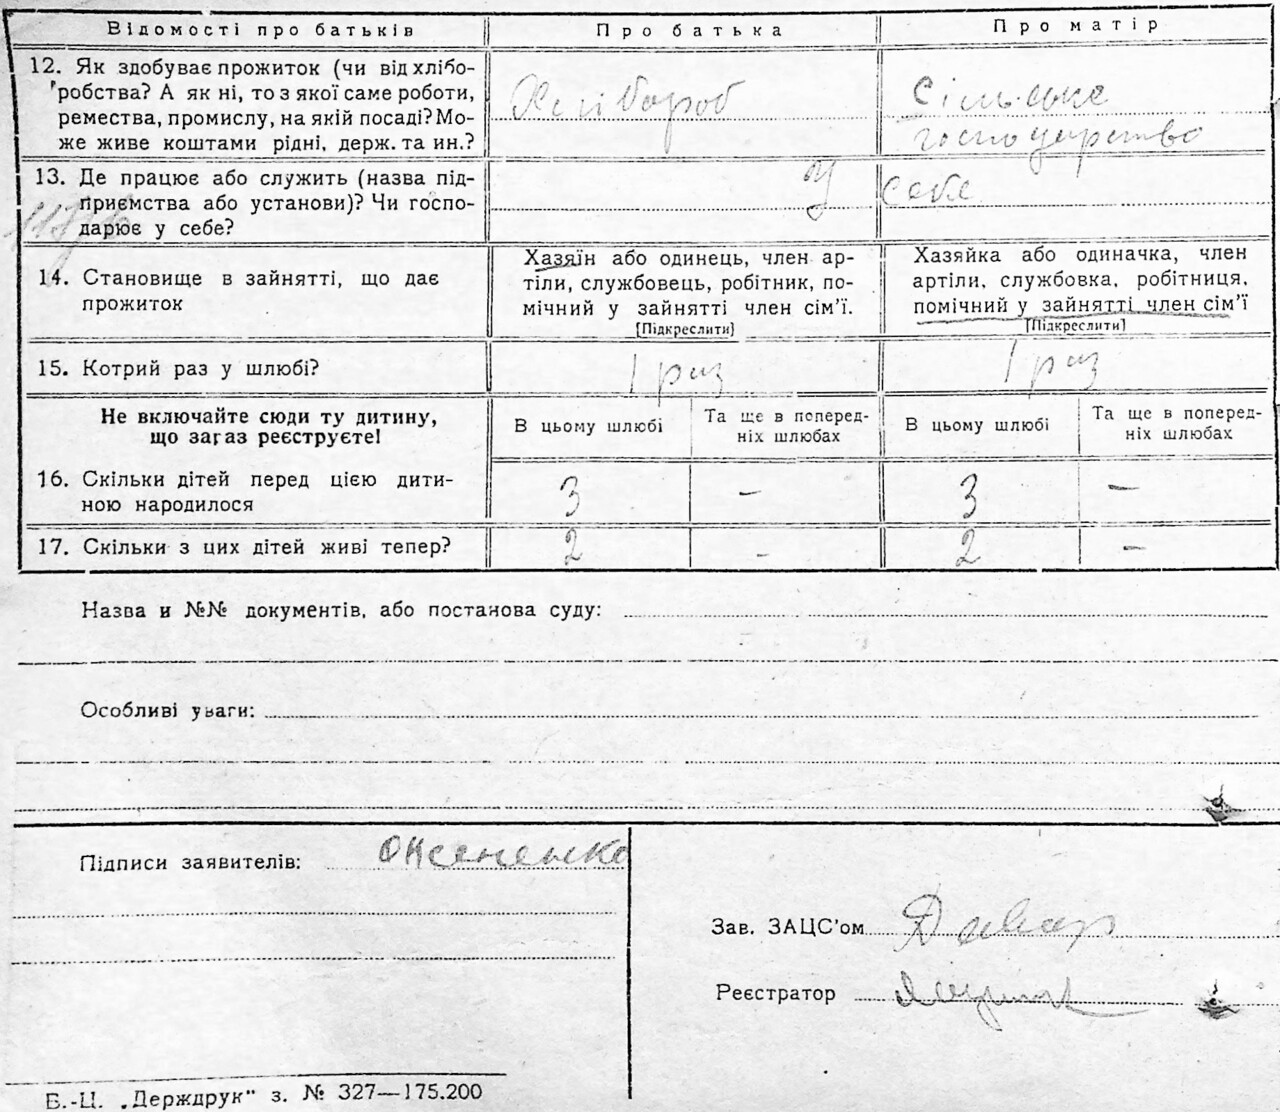 Відомості про батьків
Про батька
Про матір
12. Як здобуває прожиток (чи від хлібо-
робства? А як ні, то з якої саме роботи,
ремества, промислу, на якій посаді? Мо-
же живе коштами рідні, держ. та ин.?
Хлібороб
Сільське
господарство
13. Де працює або служить (назва під-
приємства або установи)? Чи госпо-
дарює у себе?
У себе
14. Становище в зайнятті, що дає
прожиток
Хазяїн або одинець, член ар-
тіли, службовець, робітник, по-
мічний у зайнятті член сім'ї.
[Підкреслити]
Хазяйка або одиначка, член
артіли, службовка, робітниця,
помічний у зайнятті член сім'ї
[Підкреслити]
15. Котрий раз у шлюбі?
1 раз
1 раз
Не включайте сюди ту дитину,
що загаз реєструєте!
В цьому шлюбі
Та ще в поперед-
ніх шлюбах
В цьому шлюбі
Та ще в поперед-
ніх шлюбах
16. Скільки дітей перед цією дити-
ною народилося
3
–
3
–
17. Скільки з цих дітей живі тепер?
2
–
2
–
Назва и №№ документів, або постанова суду:
Особливі уваги:
Підписи заявителів: Оксененко
Зав. ЗАЦС'ом
Реєстратор
Б.-Ц. „Держдрук" з. № 327—175.200